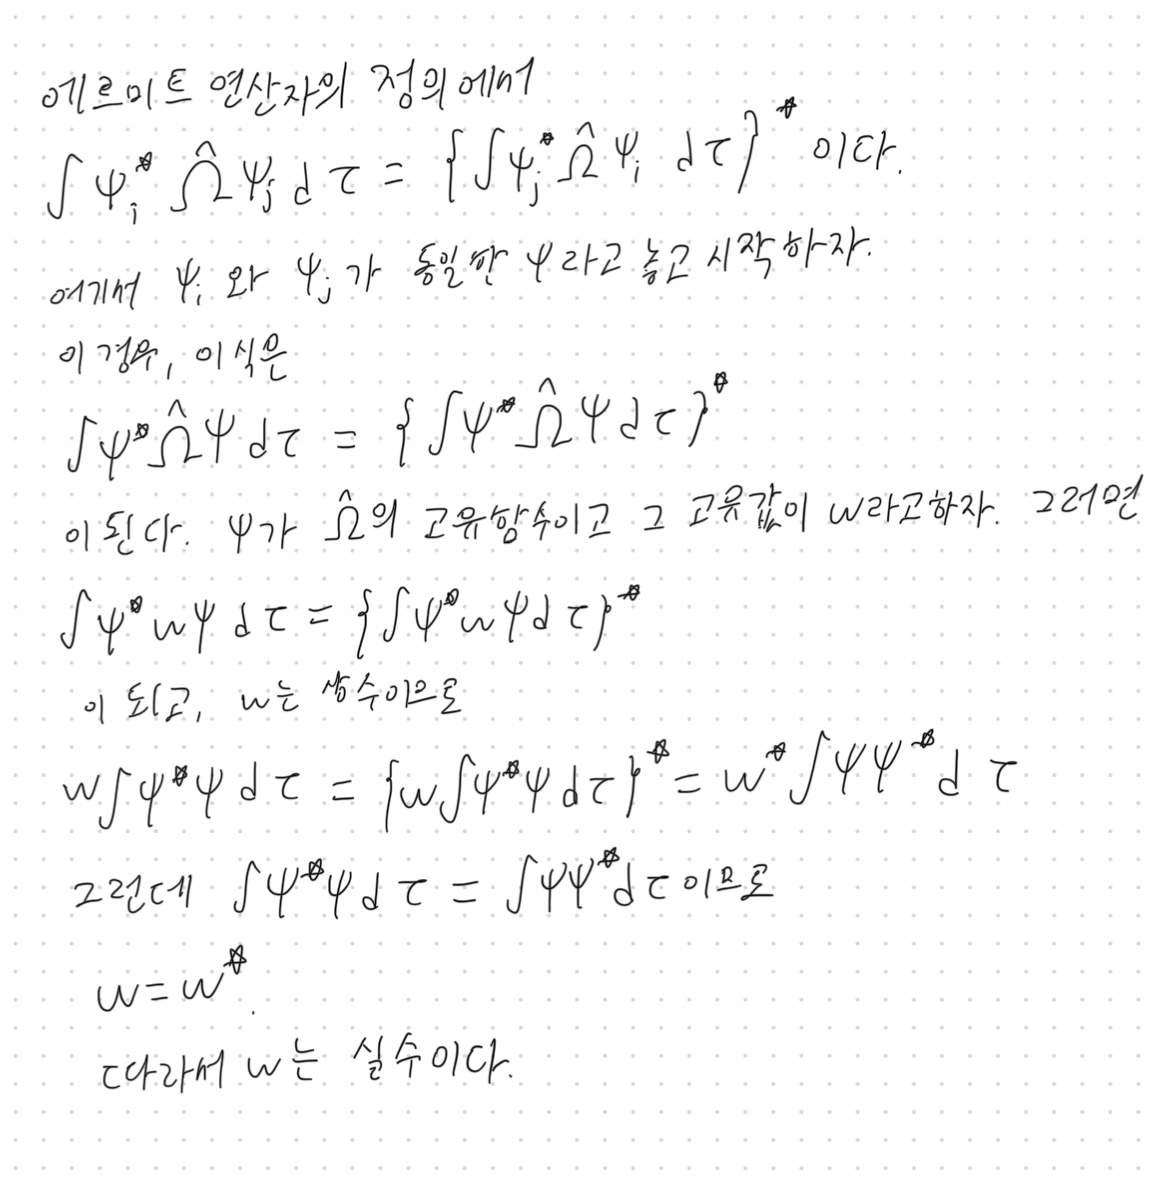 에르미트 연산자의 정의에서
∫ψᵢ* Ω̂ ψⱼ dτ = {∫ψⱼ* Ω̂ ψᵢ dτ}* 이다.
여기서 ψᵢ 와 ψⱼ가 동일한 ψ라고 놓고 시작하자.
이 경우, 이 식은
∫ψ* Ω̂ ψ dτ = {∫ψ* Ω̂ ψ dτ}*
이 된다. ψ가 Ω̂의 고유함수이고 그 고유값이 w라고하자. 그러면
∫ψ* w ψ dτ = {∫ψ* w ψ dτ}*
이 되고, w는 상수이므로
w∫ψ*ψ dτ = {w∫ψ*ψ dτ}* = w*∫ψψ* dτ
그런데 ∫ψ*ψ dτ = ∫ψψ* dτ 이므로
w = w*.
따라서 w는 실수이다.